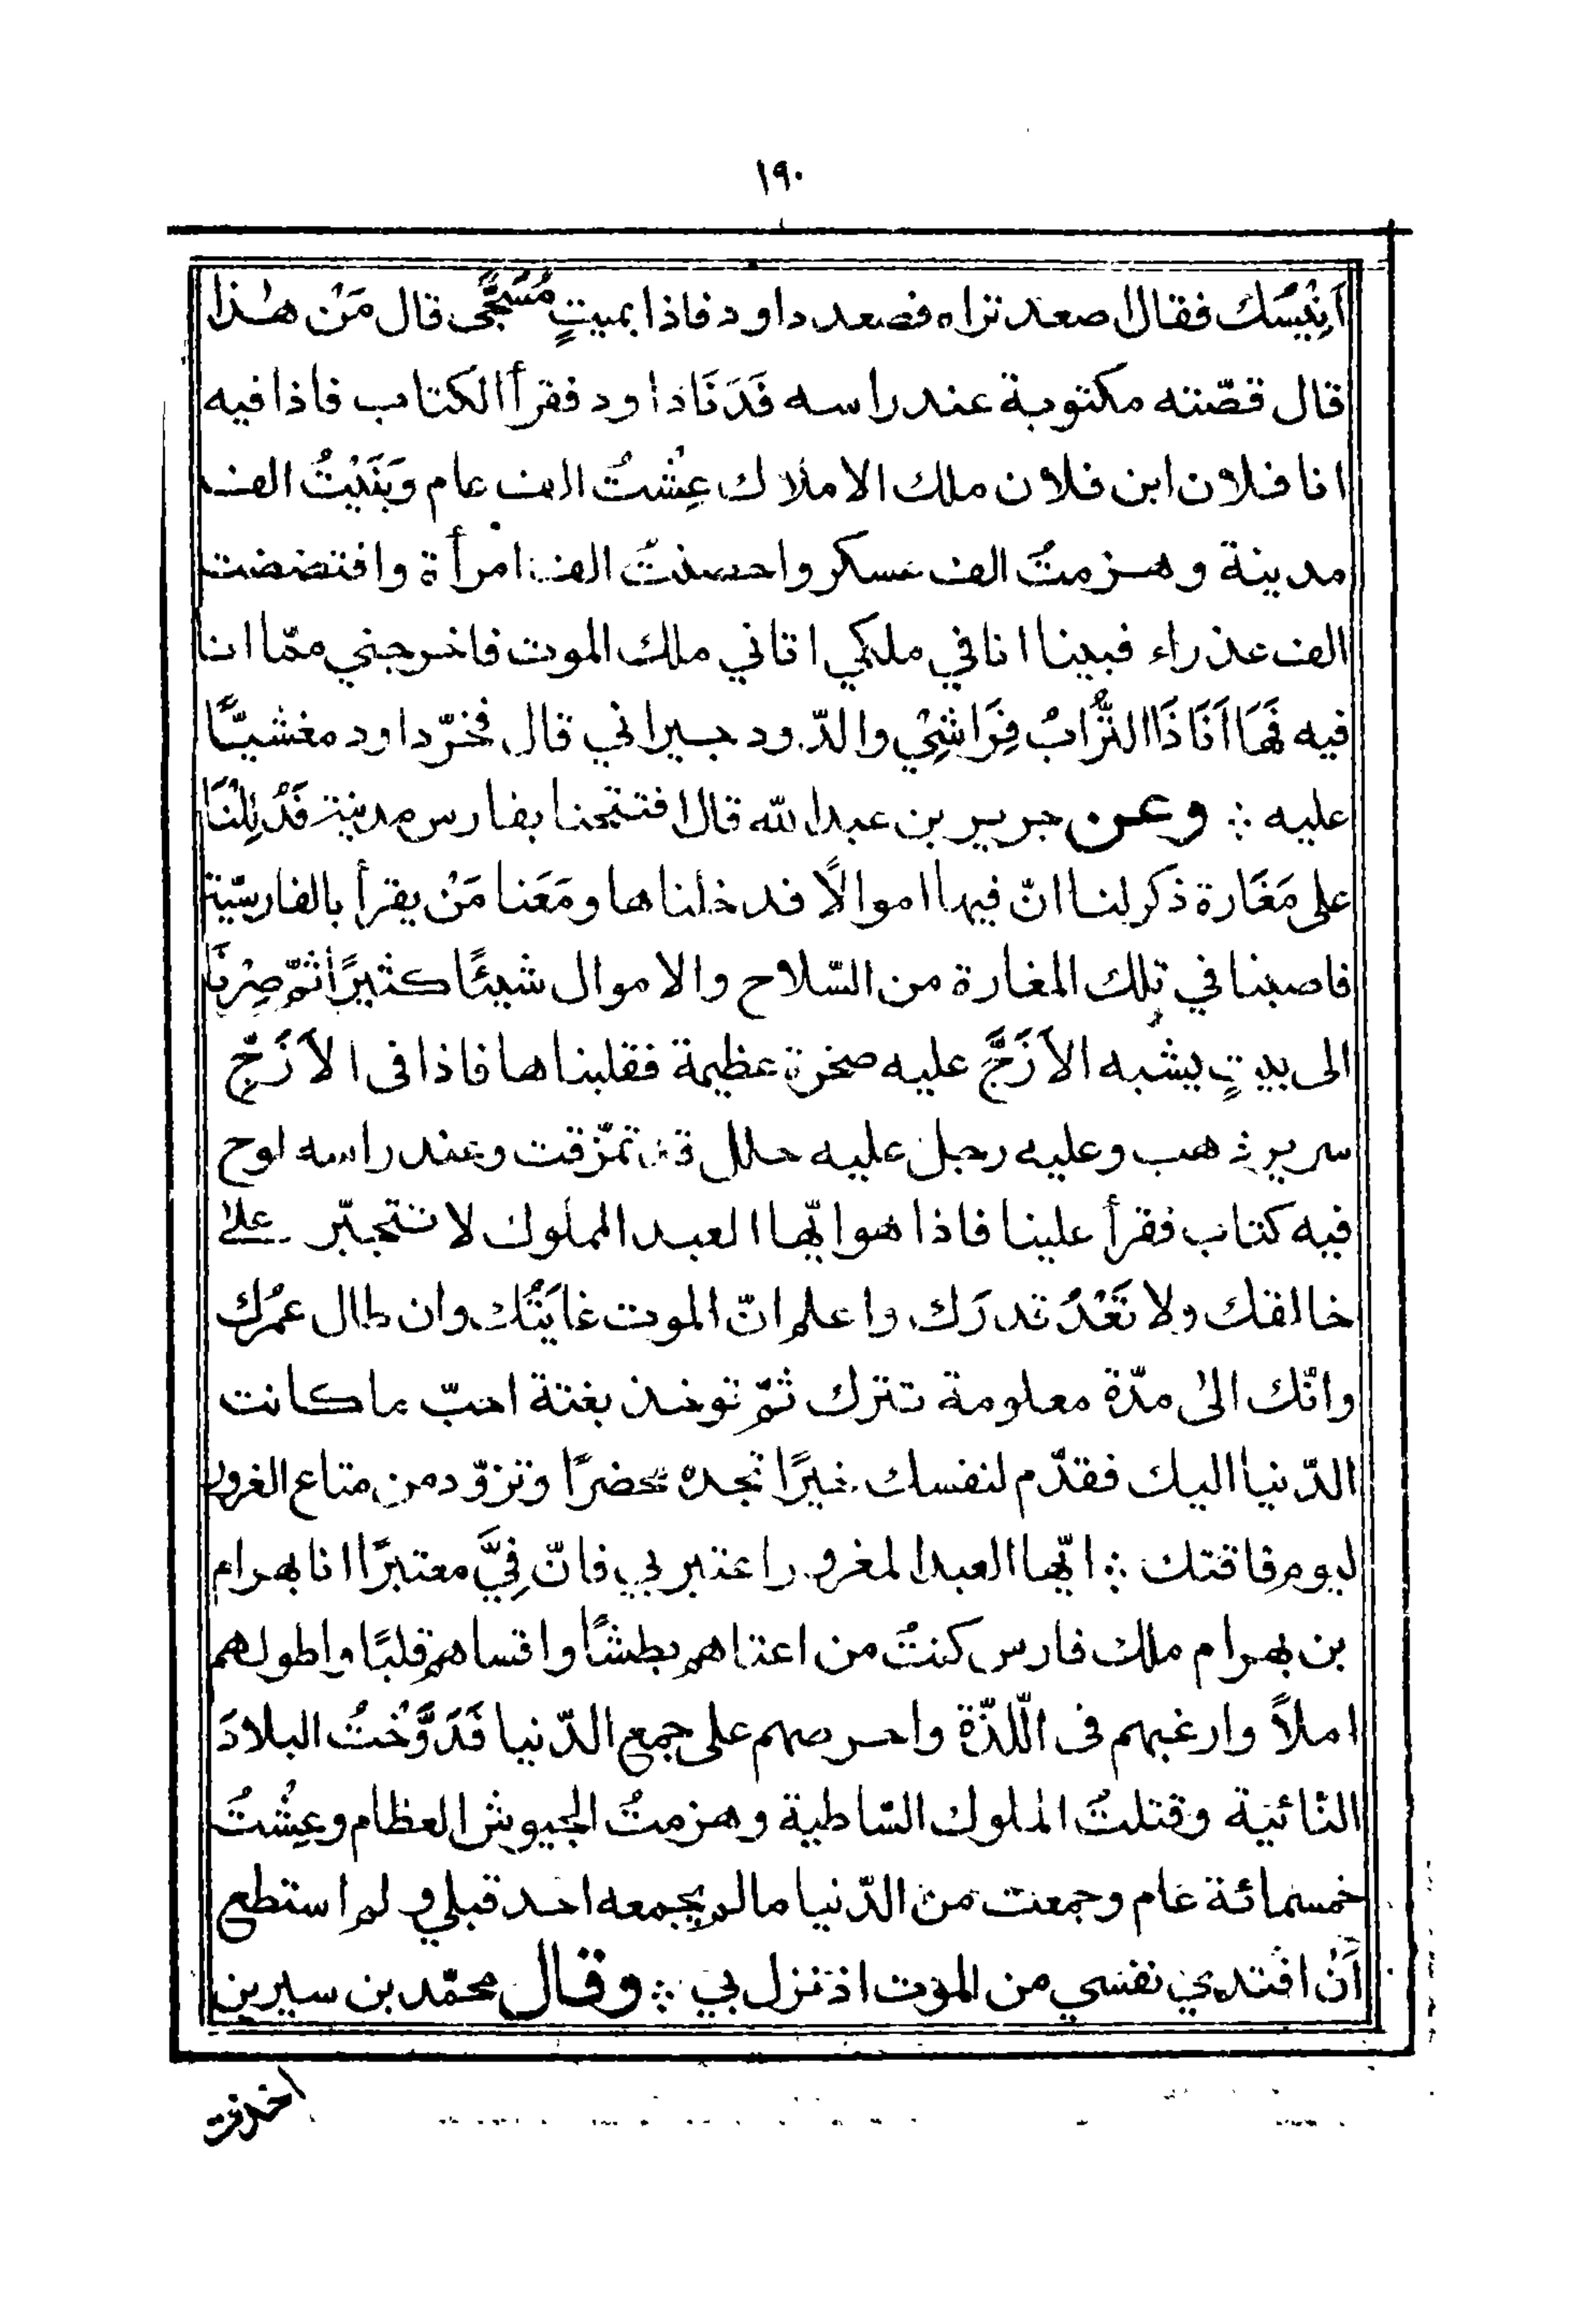 ١٩٠
اَنِيْسُك فقال اصعد تراه فصعد داود فاذا بميتٍ مُسَجًّى قال مَنْ هٰذا
قال قصّته مكتوبة عند راسه فَدَنَا داود فقرأ الكتاب فاذا فيه
انا فلان ابن فلان ملك الاملاك عِشْتُ الف عام وَبَنَيْتُ الف
مدينة وهزمتُ الف عسكر واحصنتُ الف امرأة وافتضضت
الف عذراء فبينا انا في ملكي اتاني ملك الموت فاخرجني ممّا انا
فيه فَهَا اَنَا ذَا التُّرَابُ فِرَاشِيْ والدّود جيراني قال فخرّ داود مغشيًّا
عليه ؞ وعن جرير بن عبد الله قال افتتحنا بفارس مدينة فَدُلِلْنَا
على مَغَارة ذكر لنا انّ فيها اموالًا فدخلناها ومَعَنا مَنْ يقرأ بالفارسيّة
فاصبنا في تلك المغارة من السّلاح والاموال شيئًا كثيرًا ثمّ صِرْنَا
الى بيتٍ يشبه الاَزَجَّ عليه صخرة عظيمة فقلبناها فاذا فى الاَزَجّ
سرير ذهب وعليه رجل عليه حلل قد تمزّقت وعند راسه لوح
فيه كتاب فقرأ علينا فاذا هو ايّها العبد المملوك لا تتجبّر على
خالقك ولا تَعْدُ قدرَك واعلم انّ الموت غايَتُك وان طال عمُرك
وانّك الىٰ مدّة معلومة تترك ثمّ توخذ بغتة احبّ ما كانت
الدّنيا اليك فقدّم لنفسك خيرًا تجده محضرًا وتزوّد من متاع الغرور
ليوم فاقتك ؞ ايّها العبد المغرور اعتبر بي فانّ فِيَّ معتبرًا انا بهرام
بن بهرام ملك فارس كنتُ من اعتاهم بطشًا واقساهم قلبًا واطولهم
املاً وارغبهم فى اللّذّة واحرصهم على جمع الدّنيا فَدَوَّخْتُ البلادَ
النّائية وقتلتُ الملوك السّاطية وهزمتُ الجيوش العظام وعِشْتُ
خمسمائة عام وجمعت من الدّنيا ما لم يجمعه احد قبلي ولم استطع
اَنْ افتدي نفسي من الموت اذ نزل بي ؞ وقال محمّد بن سيرين